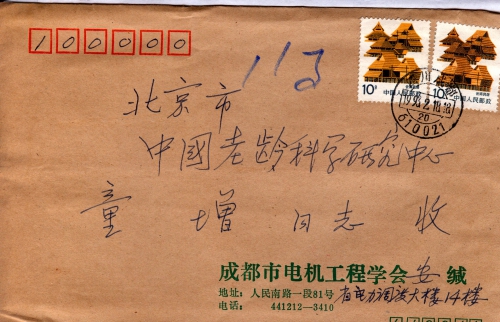 100000
113
10分 中国人民邮政
10分 中国人民邮政
1993.2.18.18
20
610021
北京市
中國老龄科学研究中心
童增同志 收
成都市电机工程学会 安 缄
地址：人民南路一段81号 省电力调度大楼14楼
电话： 441212—3410